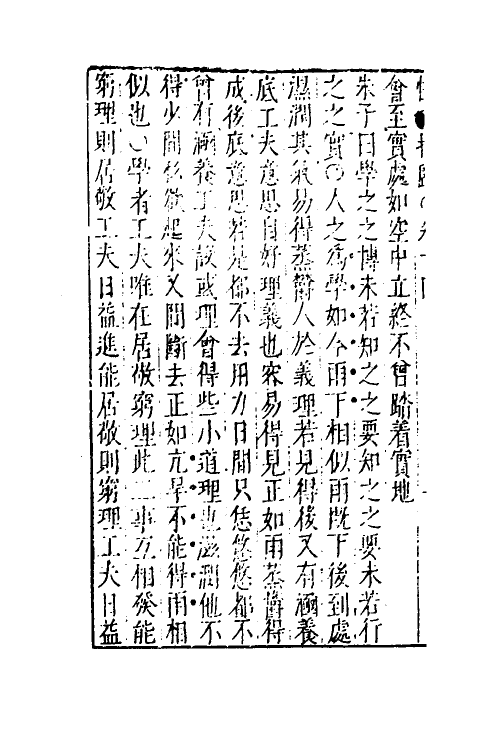 會至實處如空中立終不曾踏着實地
朱子曰學之之博未若知之之要知之之要未若行
之之實〇人之爲學如今雨下相似雨旣下後到處
濕潤其氣易得蒸鬱人於義理若見得後又有涵養
底工夫意思自好理義也容易得見正如雨蒸鬱得
成後底意思若是都不去用力日間只恁悠悠都不
曾有涵養工夫設或理會得些小道理也滋潤他不
得少間私欲起來又間斷去正如亢旱不能得雨相
似也〇學者工夫唯在居敬窮理此二事互相發能
窮理則居敬工夫日益進能居敬則窮理工夫日益